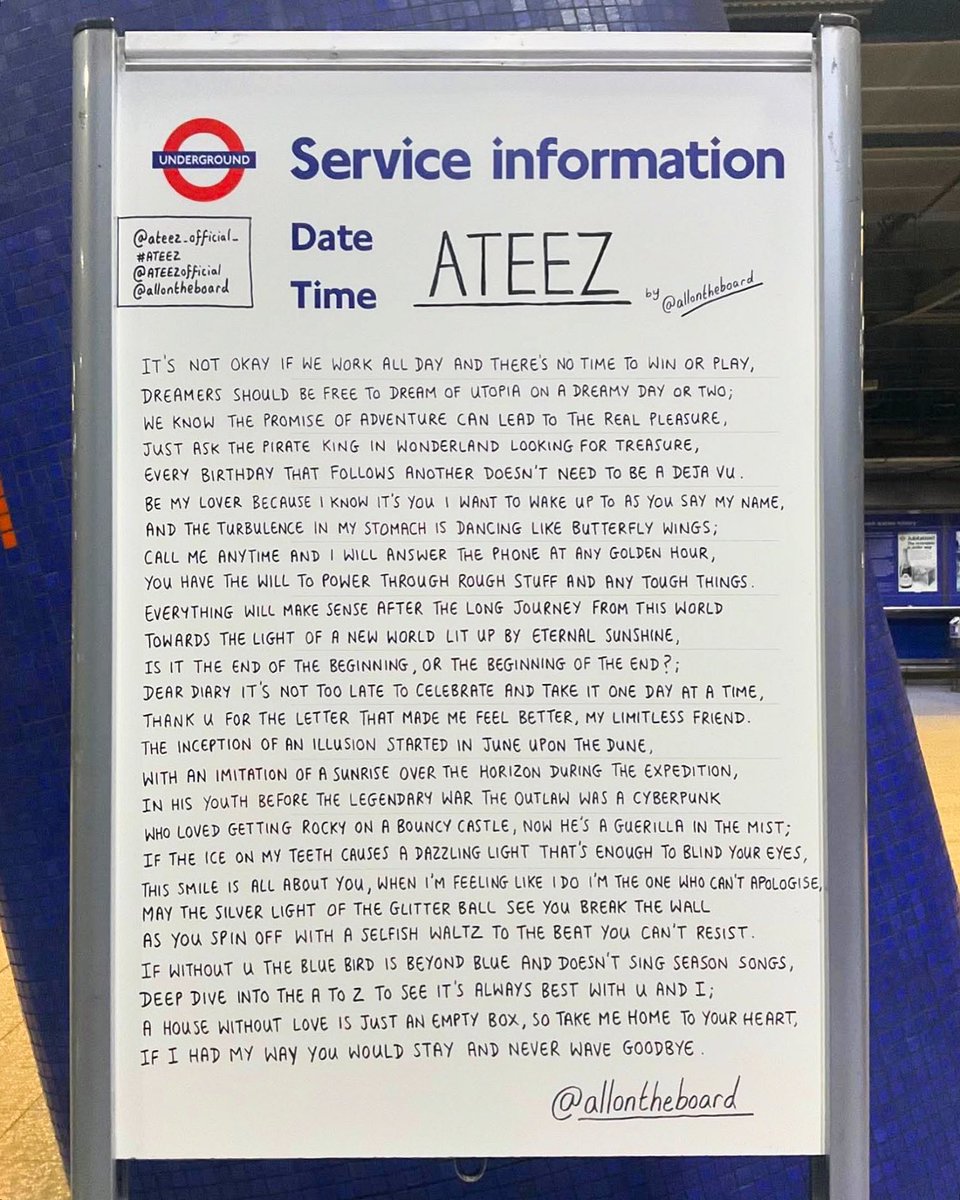 UNDERGROUND
Service information
@ateez_official_
#ATEEZ
@ATEEZofficial
@allontheboard
Date
Time
ATEEZ
by @allontheboard
IT'S NOT OKAY IF WE WORK ALL DAY AND THERE'S NO TIME TO WIN OR PLAY,
DREAMERS SHOULD BE FREE TO DREAM OF UTOPIA ON A DREAMY DAY OR TWO;
WE KNOW THE PROMISE OF ADVENTURE CAN LEAD TO THE REAL PLEASURE,
JUST ASK THE PIRATE KING IN WONDERLAND LOOKING FOR TREASURE,
EVERY BIRTHDAY THAT FOLLOWS ANOTHER DOESN'T NEED TO BE A DEJA VU.
BE MY LOVER BECAUSE I KNOW IT'S YOU I WANT TO WAKE UP TO AS YOU SAY MY NAME,
AND THE TURBULENCE IN MY STOMACH IS DANCING LIKE BUTTERFLY WINGS;
CALL ME ANYTIME AND I WILL ANSWER THE PHONE AT ANY GOLDEN HOUR,
YOU HAVE THE WILL TO POWER THROUGH ROUGH STUFF AND ANY TOUGH THINGS.
EVERYTHING WILL MAKE SENSE AFTER THE LONG JOURNEY FROM THIS WORLD
TOWARDS THE LIGHT OF A NEW WORLD LIT UP BY ETERNAL SUNSHINE,
IS IT THE END OF THE BEGINNING, OR THE BEGINNING OF THE END?;
DEAR DIARY IT'S NOT TOO LATE TO CELEBRATE AND TAKE IT ONE DAY AT A TIME,
THANK U FOR THE LETTER THAT MADE ME FEEL BETTER, MY LIMITLESS FRIEND.
THE INCEPTION OF AN ILLUSION STARTED IN JUNE UPON THE DUNE,
WITH AN IMITATION OF A SUNRISE OVER THE HORIZON DURING THE EXPEDITION,
IN HIS YOUTH BEFORE THE LEGENDARY WAR THE OUTLAW WAS A CYBERPUNK
WHO LOVED GETTING ROCKY ON A BOUNCY CASTLE, NOW HE'S A GUERILLA IN THE MIST;
IF THE ICE ON MY TEETH CAUSES A DAZZLING LIGHT THAT'S ENOUGH TO BLIND YOUR EYES,
THIS SMILE IS ALL ABOUT YOU, WHEN I'M FEELING LIKE I DO I'M THE ONE WHO CAN'T APOLOGISE,
MAY THE SILVER LIGHT OF THE GLITTER BALL SEE YOU BREAK THE WALL
AS YOU SPIN OFF WITH A SELFISH WALTZ TO THE BEAT YOU CAN'T RESIST.
IF WITHOUT U THE BLUE BIRD IS BEYOND BLUE AND DOESN'T SING SEASON SONGS,
DEEP DIVE INTO THE A TO Z TO SEE IT'S ALWAYS BEST WITH U AND I;
A HOUSE WITHOUT LOVE IS JUST AN EMPTY BOX, SO TAKE ME HOME TO YOUR HEART,
IF I HAD MY WAY YOU WOULD STAY AND NEVER WAVE GOODBYE.
@allontheboard